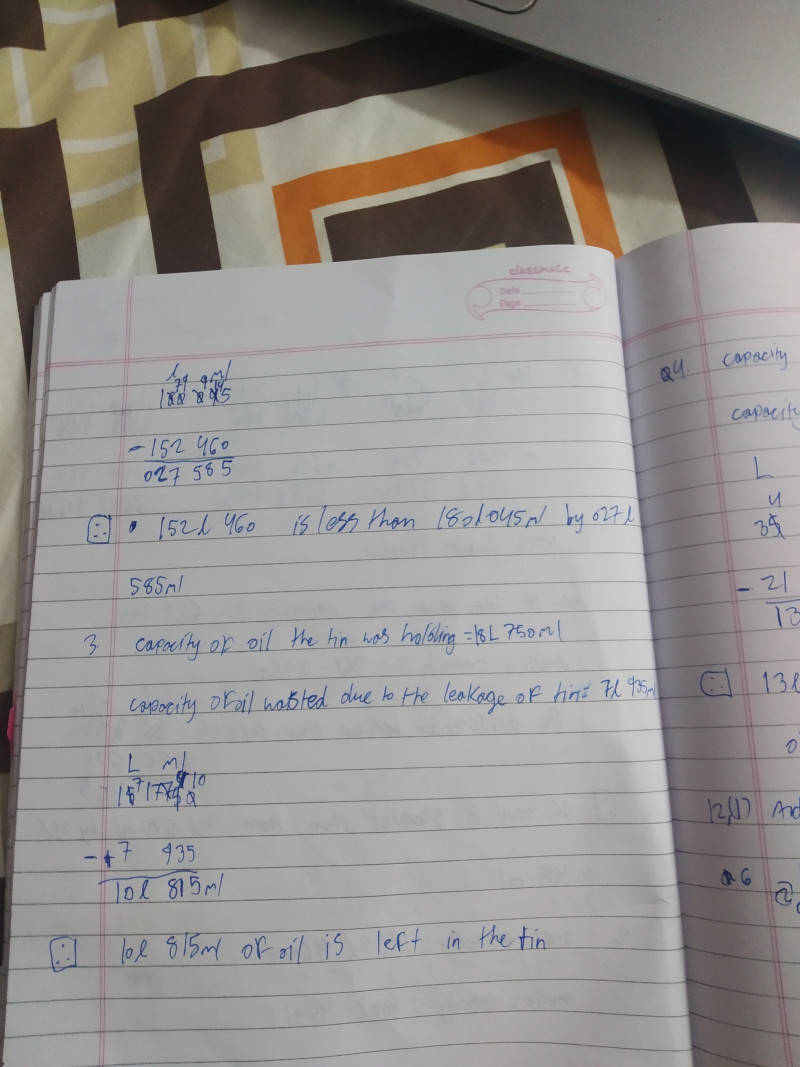 classmate
Date
Page
l ml
- 152 460
027 585
∴ • 152l 460 is less than 180l 045ml by 027l
585ml
3. capacity of oil the tin was holding = 18L 750ml
capacity of oil wasted due to the leakage of tin = 7l 935ml
L ml
- 7 935
10l 815ml
∴ 10l 815ml of oil is left in the tin
Q4. capacity
capacity
L
4
- 21
13
∴ 13l
12,(1)
Q6